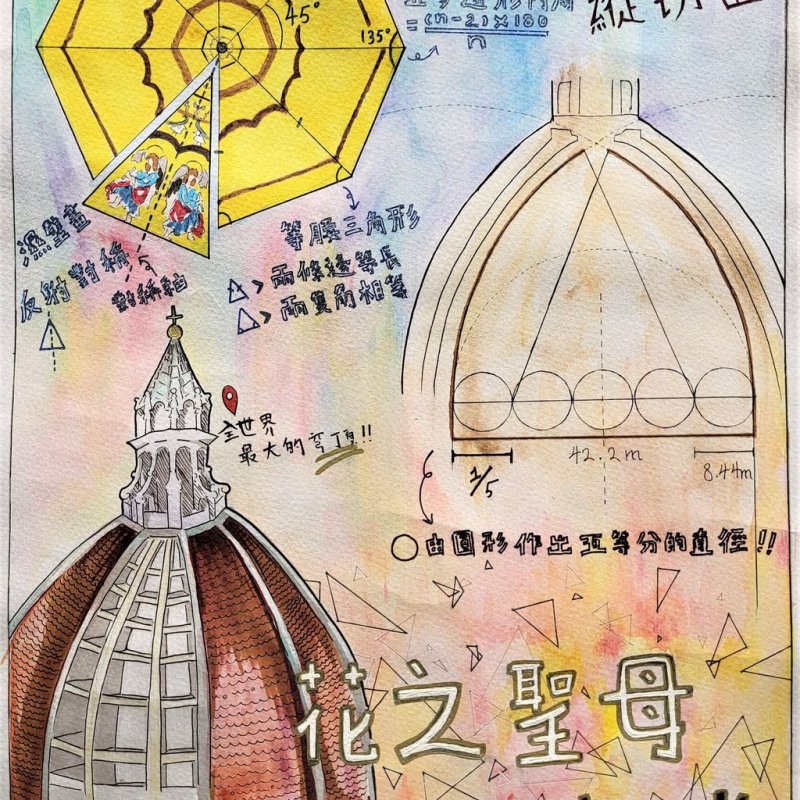 45°
135°
正多邊形內角
=(n-2)×180
n
縱切面
濕壁畫
反射對稱
對稱軸
等腰三角形
兩條邊等長
兩隻角相等
全世界
最大的穹頂!!
1/5
42.2m
8.44m
由圓形作出五等分的直徑!!
花之聖母